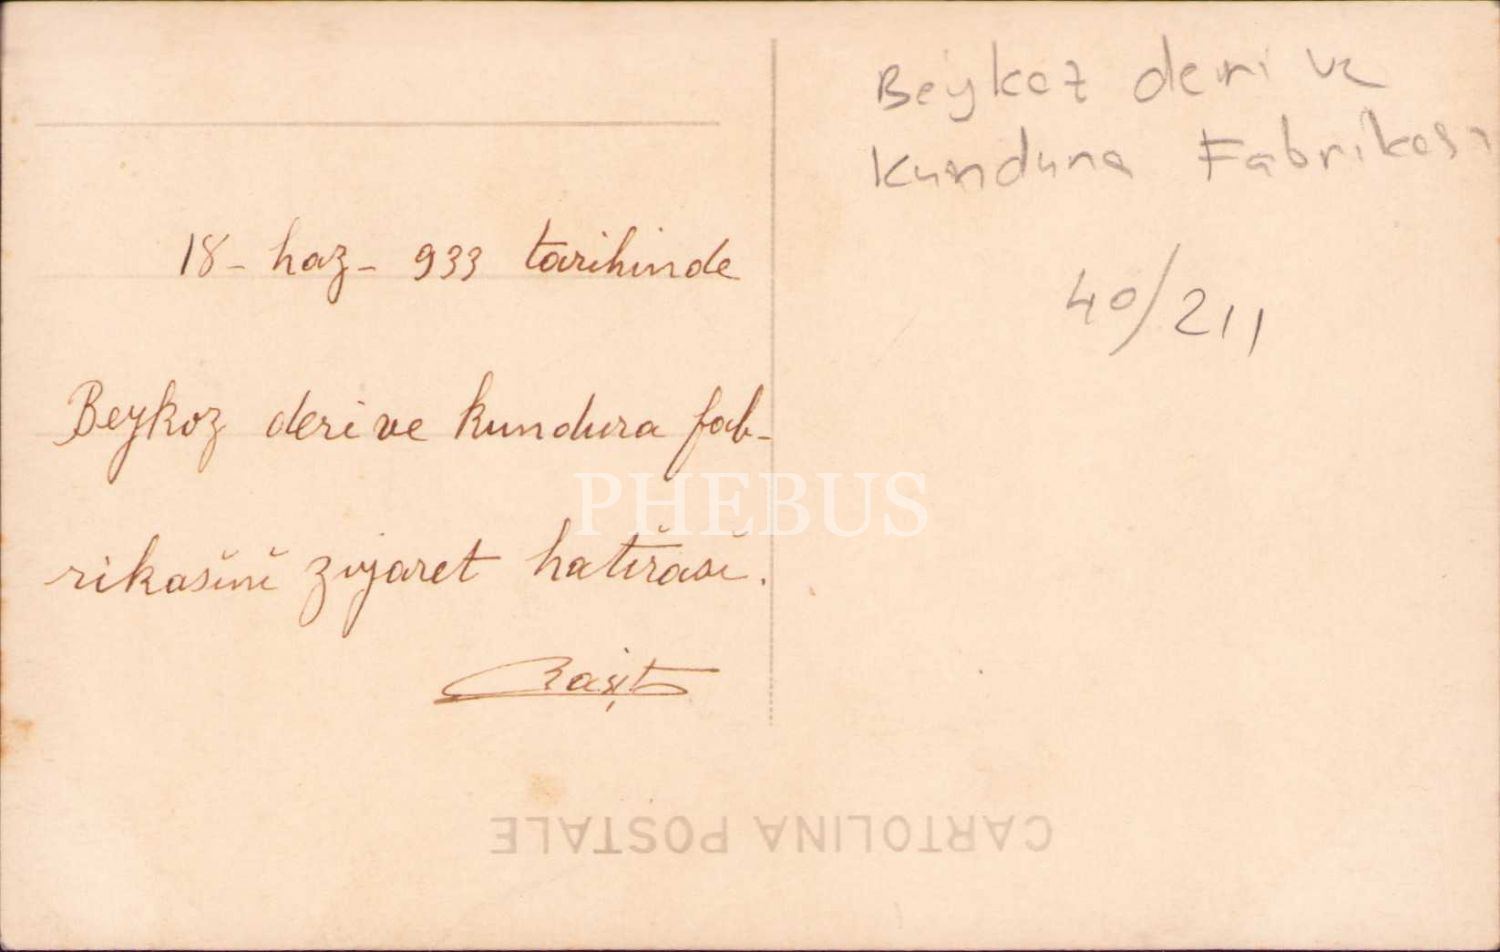 18 - haz - 933 tarihinde
Beykoz deri ve kundura fab-
rikasını ziyaret hatırası.
Raşit
Beykoz deri ve
Kundura Fabrikası
40/211
PHEBUS
CARTOLINA POSTALE